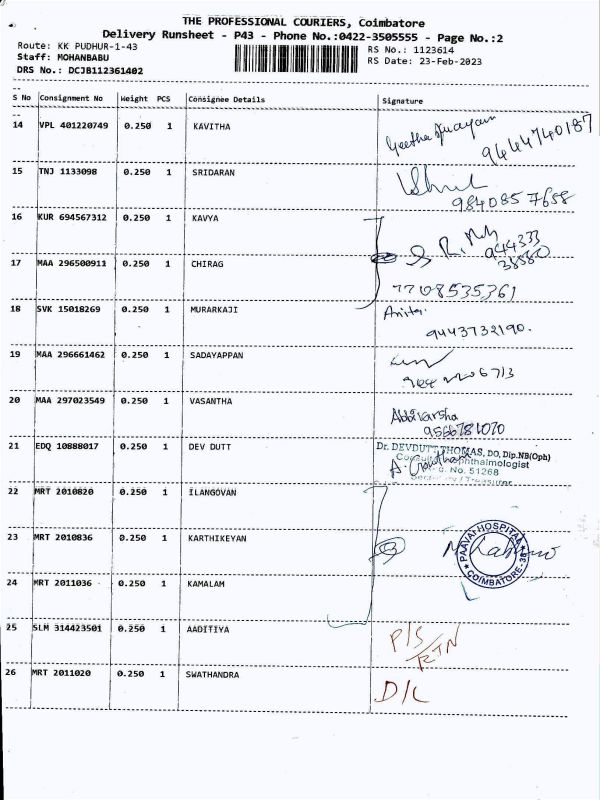 THE PROFESSIONAL COURIERS, Coimbatore
Delivery Runsheet - P43 - Phone No.:0422-3505555 - Page No.:2
Route: KK PUDHUR-1-43 RS No.: 1123614
Staff: MOHANBABU RS Date: 23-Feb-2023
DRS No.: DCJB112361402
S No Consignment No Weight PCS Consignee Details Signature
14 VPL 401220749 0.250 1 KAVITHA
9444740187
15 TNJ 1133098 0.250 1 SRIDARAN
9840857658
16 KUR 694567312 0.250 1 KAVYA
944333
38580
17 MAA 296500911 0.250 1 CHIRAG
7708535361
18 SVK 15018269 0.250 1 MURARKAJI Anita.
9443732190.
19 MAA 296661462 0.250 1 SADAYAPPAN
20 MAA 297023549 0.250 1 VASANTHA
9566781070
21 EDQ 10888017 0.250 1 DEV DUTT Dr. DEVDUTT THOMAS, DO, Dip.NB(Oph)
Ophthalmologist
No. 51268
Secretary / Treasurer
22 MRT 2010820 0.250 1 ILANGOVAN
23 MRT 2010836 0.250 1 KARTHIKEYAN
PAAVAI HOSPITAL
COIMBATORE-38
24 MRT 2011036 0.250 1 KAMALAM
25 SLM 314423501 0.250 1 AADITIYA P/S
RTN
26 MRT 2011020 0.250 1 SWATHANDRA D/L